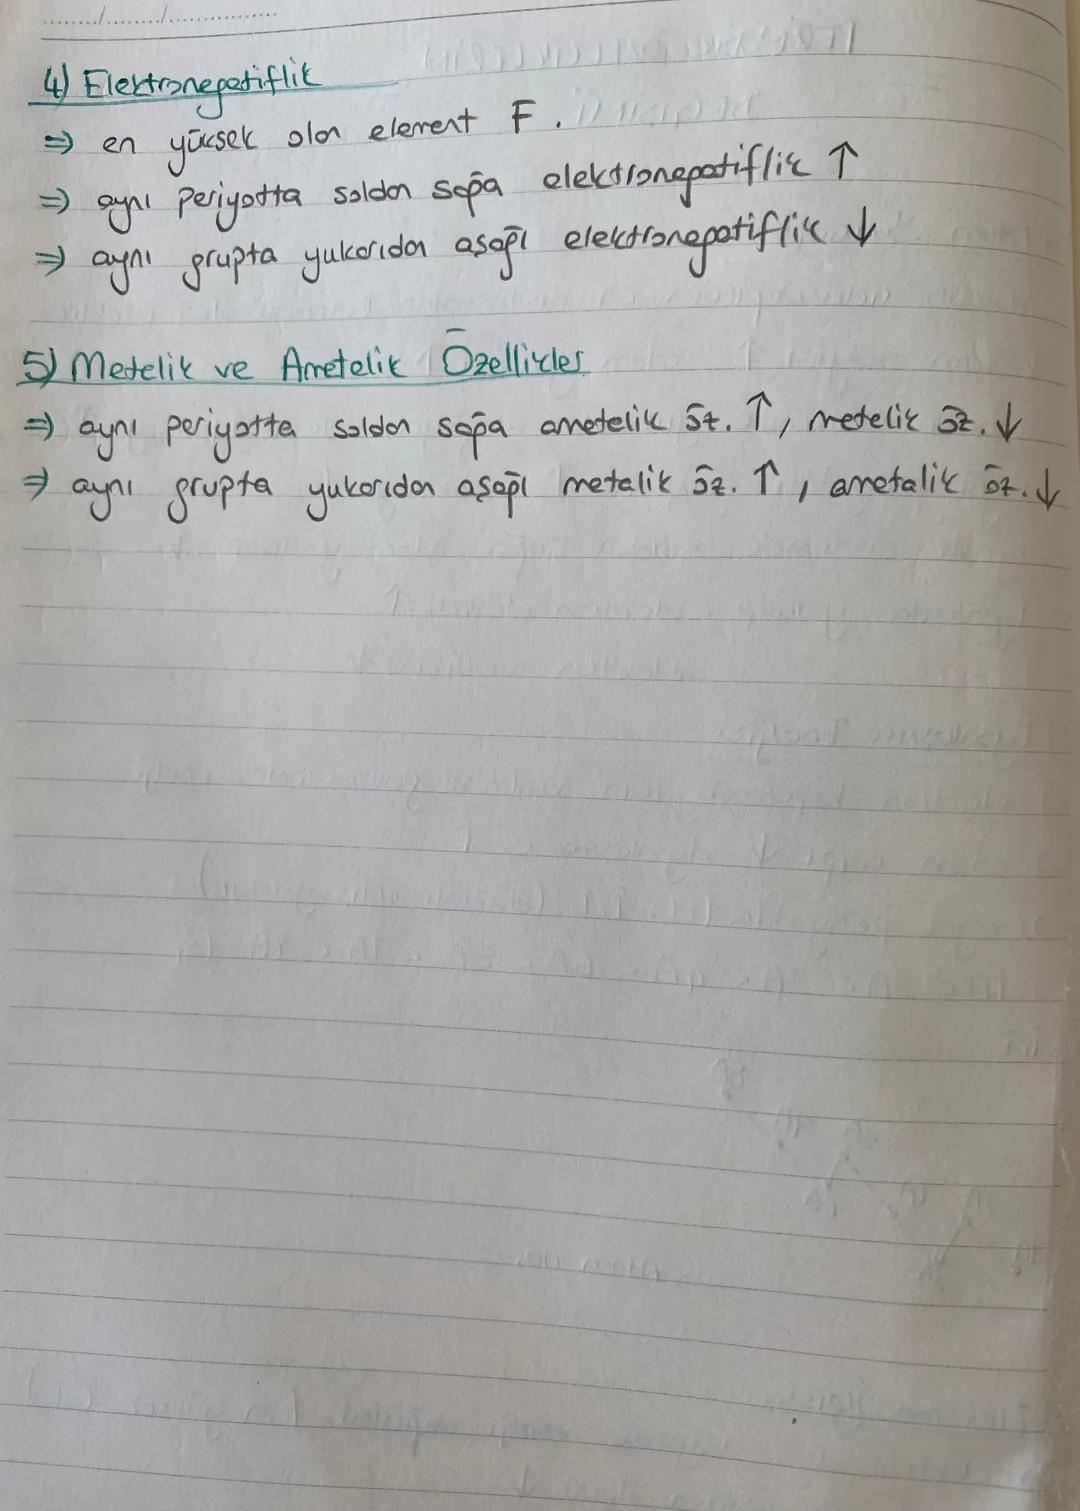 4) Elektronegatiflik
⇒ en yüksek olan element F.
⇒ aynı periyotta soldan sağa elektronegatiflik ↑
⇒ aynı grupta yukarıdan aşağı elektronegatiflik ↓
5) Metalik ve Ametalik Özellikler
⇒ aynı periyotta soldan sağa ametalik öz. ↑, metalik öz. ↓
⇒ aynı grupta yukarıdan aşağı metalik öz. ↑, ametalik öz. ↓